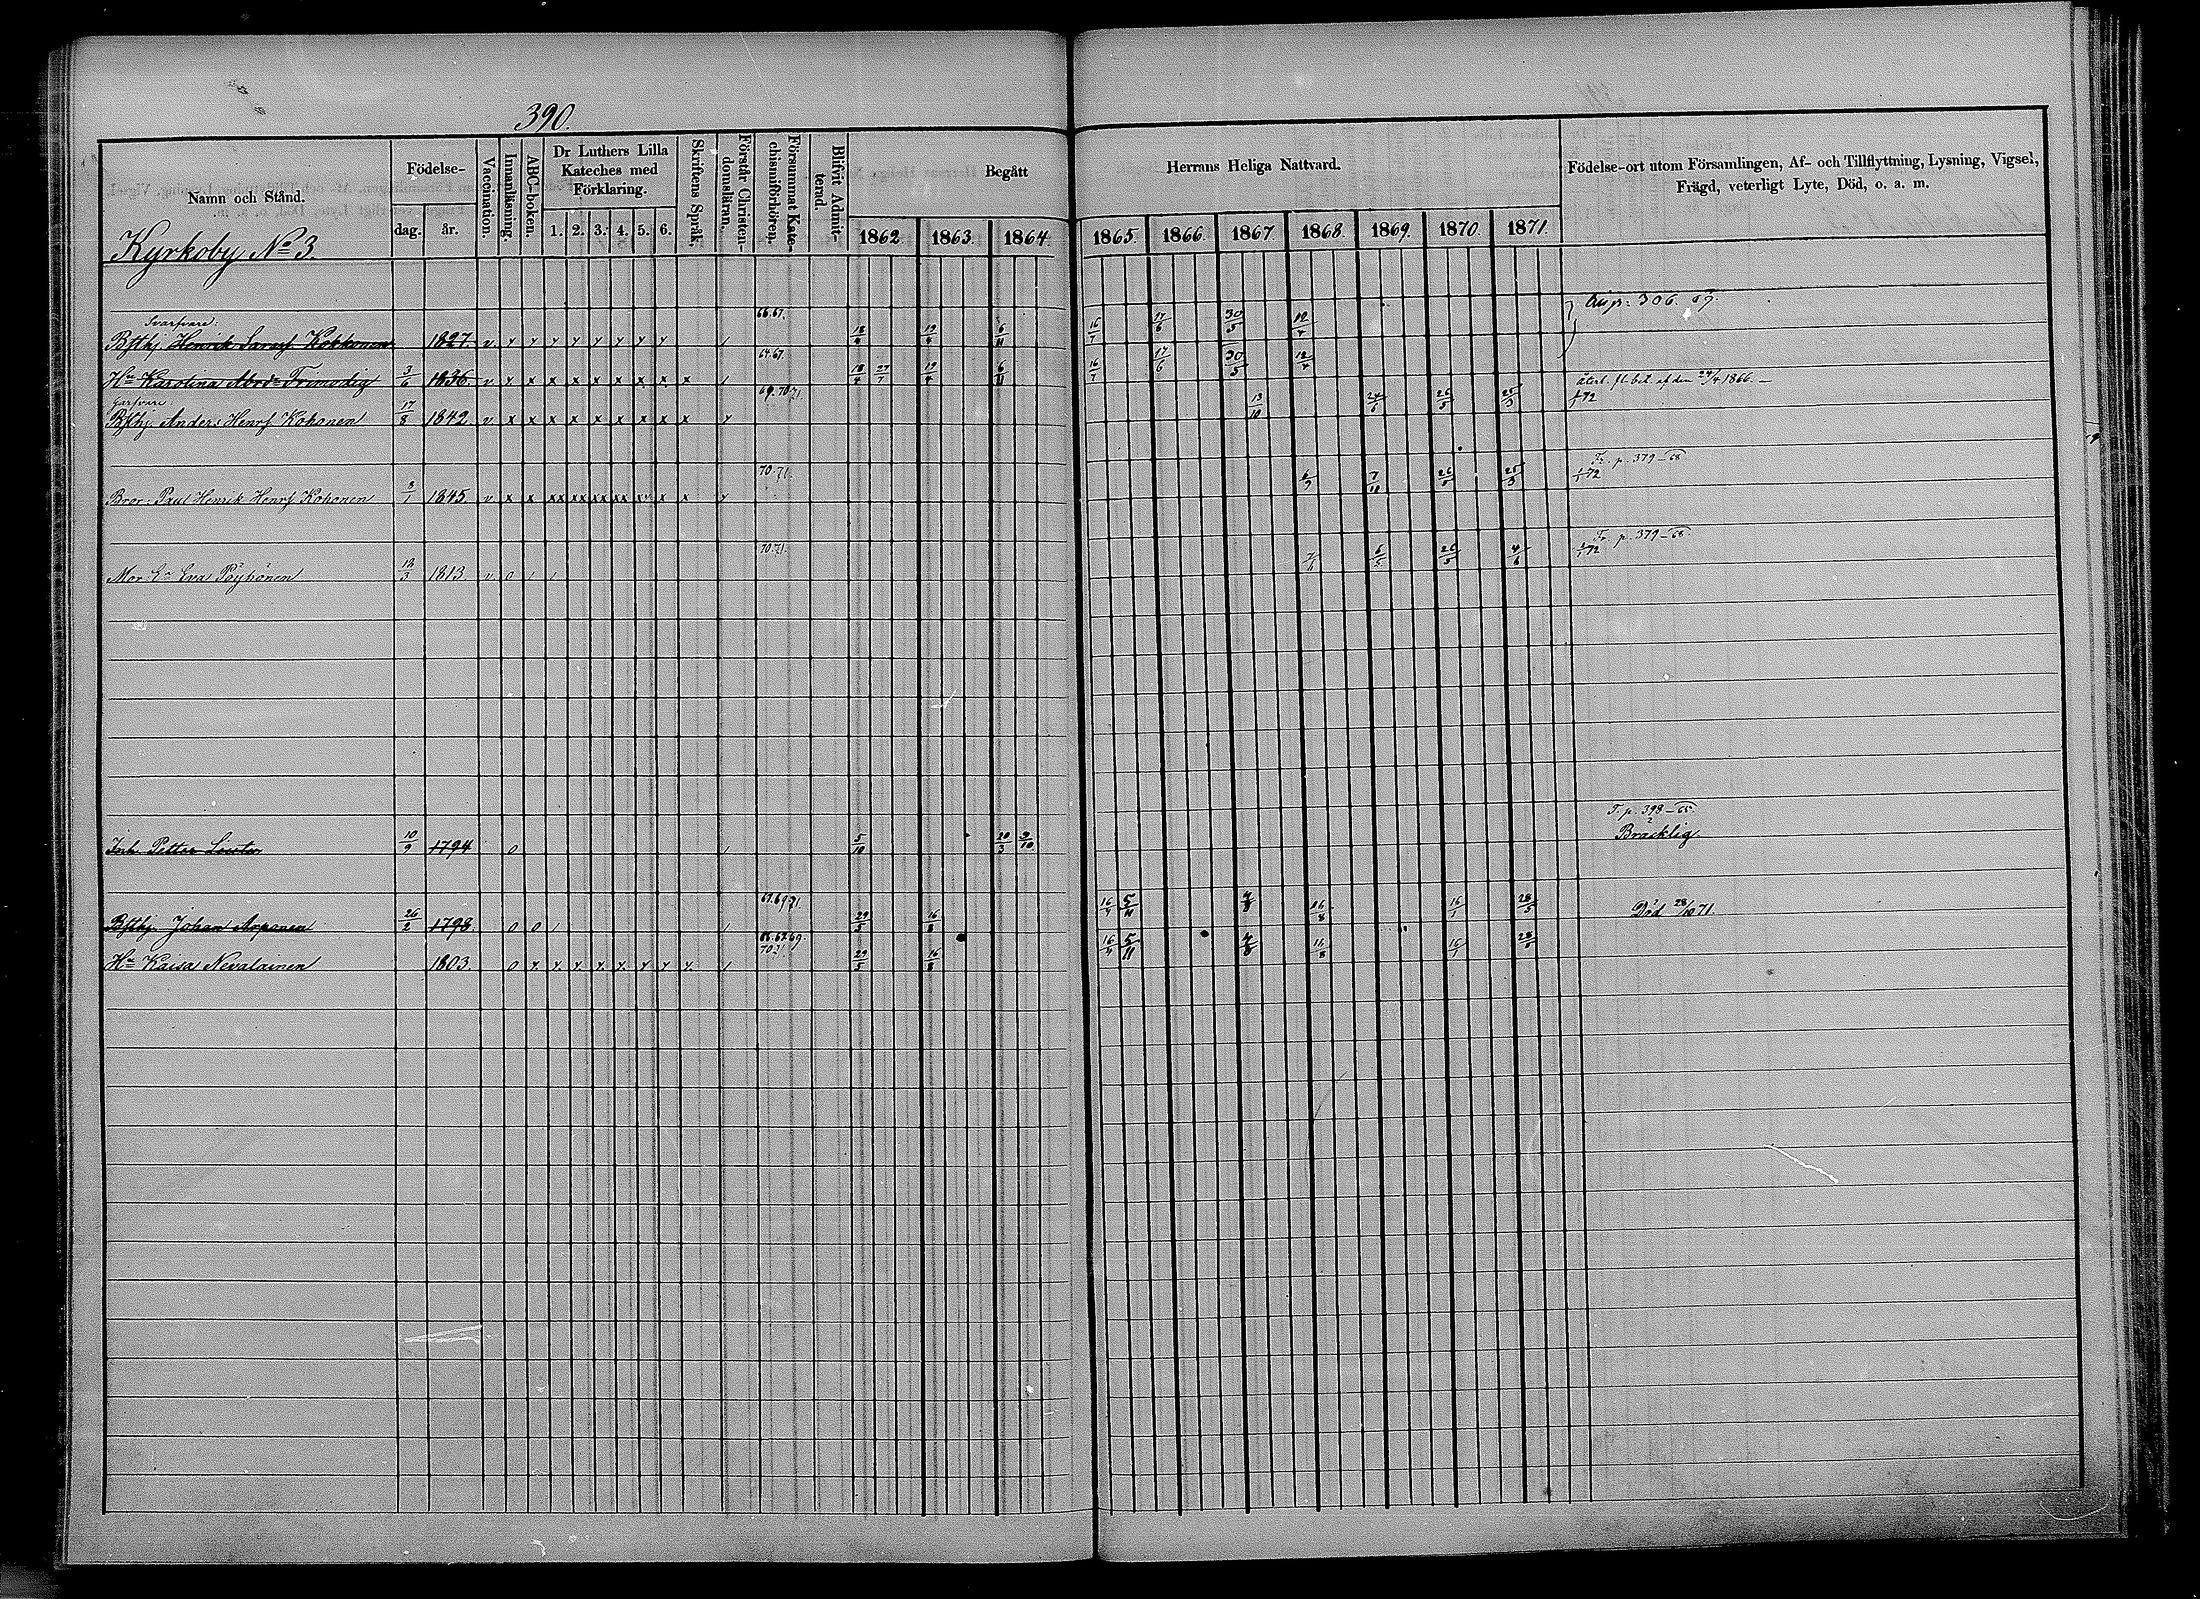 390.
Namn och Stånd.
Födelse-
dag.
år.
Vaccination.
Innanläsning.
ABC-boken.
Dr Luthers Lilla Kateches med Förklaring.
1. 2. 3. 4. 5. 6.
Skriftens Språk.
Förstår Christendomsläran.
Försummat Katechismiförhören.
Blifvit Admitterad.
Begått Herrans Heliga Nattvard.
1862. 1863. 1864 1865. 1866. 1867. 1868. 1869. 1870. 1871.
Födelse-ort utom Församlingen, Af- och Tillflyttning, Lysning, Vigsel,
Frägd, veterligt Lyte, Död, o. a. m.
Kyrkoby No 3.
Svarfvare:
Bsthj Henrik Kokkonen 1827. v. 66.67. 18/4 19/4 6/11 16/7 17/6 30/5 12/4 p: 306. 69.
Hu Karolina Abrdr Frimodig 3/6 1836. v 64.67. 18/4 27/7 19/4 6/11 16/7 17/6 30/5 12/4
Garfvare:
Bsthj Anders Henrs Kohonen 17/8 1842. v. x x x x x x x x x 69.70.71 13/10 24/6 26/5 25/3 återl. fl. bet. af den 24/4 1866.
Bror: Paul Henrik Henrs Kohonen 3/1 1845. v x x xx xx xx xx x x 70.71. 6/9 7/11 26/5 25/3 Fr. p. 379-68
Mor Ea Eva Pöyhönen 12/3 1813. v 0 70.71. 6/5 26/5 4/6 Fr. p. 379-68
Inh. Petter 10/9 1794 0 5/10 20/3 9/10 p. 398-65
Bräcklig.
Bsthj. Johan Arponen 26/2 1798. 0 0 67.69.71. 29/5 16/8 16/4 5/11 4/8 16/8 16/1 28/5 Död 28/10 71.
Hu Kaisa Nevalainen 1803. 0 66.67.69. 70.71 29/5 16/8 16/4 5/11 4/8 16/8 16/1 28/5